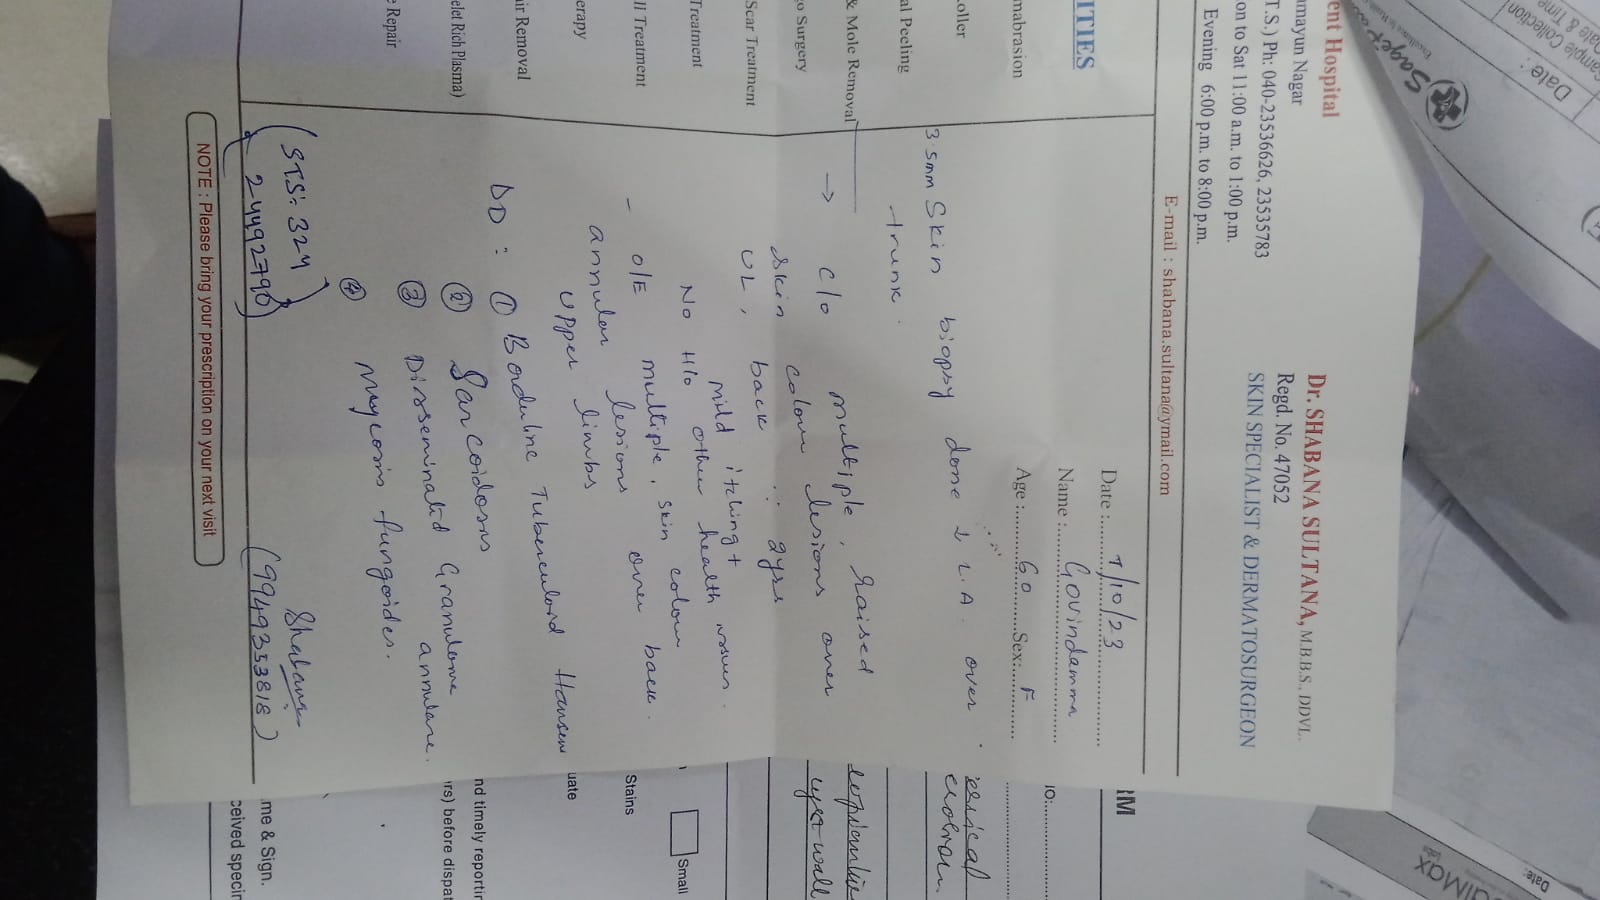 ent Hospital
Dr. SHABANA SULTANA, M.B.B.S., DDVL.
amayun Nagar
Regd. No. 47052
T.S.) Ph: 040-23536626, 23535783
SKIN SPECIALIST & DERMATOSURGEON
on to Sat 11:00 a.m. to 1:00 p.m.
Evening 6:00 p.m. to 8:00 p.m.
E-mail : shabana.sultana@ymail.com
ITIES
Date :....1/10/23
Name :....Govindamma
Age :....60....Sex:....F
mabrasion
oller
al Peeling
& Mole Removal
o Surgery
Scar Treatment
Treatment
ll Treatment
erapy
ir Removal
elet Rich Plasma)
e Repair
3.5mm Skin biopsy done L.A. over
trunk.
→ C/o multiple, raised
skin colour lesions over
UL, back ∵ 2yrs
mild itching+
No H/o other health issues.
- O/E multiple, skin colour
annular lesions over back.
upper limbs
DD : ① Borderline Tuberculoid Hansen
② Sarcoidosis
③ Disseminated Granuloma
annulare.
④ Mycosis fungoides.
(STS: 324)
24492790)
Shabana
(9949353818)
NOTE : Please bring your prescription on your next visit
RM
IO:
Small
Stains
uate
nd timely reportin
rs) before dispat
me & Sign.
ceived specin
Sample Collection
Date & Time
Date :
Date: